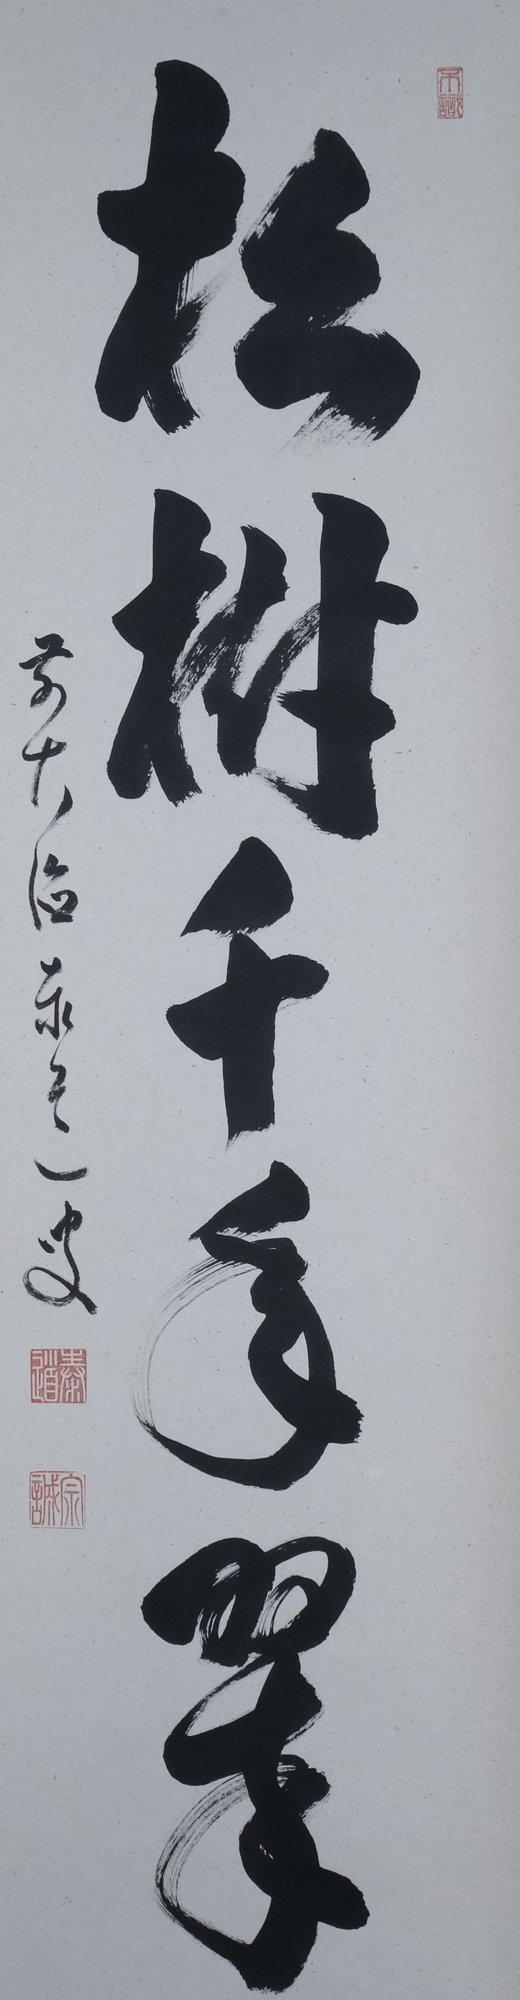 松樹千年翠
前大徳泰道叟
泰道
宗誠